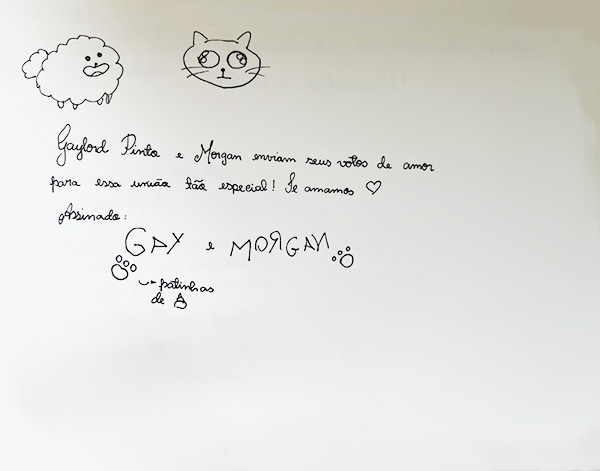 Gaylord Pinto e Morgan enviam seus votos de amor
para essa união tão especial! Te amamos ♡
Assinado:
GAY e MORGAN
patinhas
de